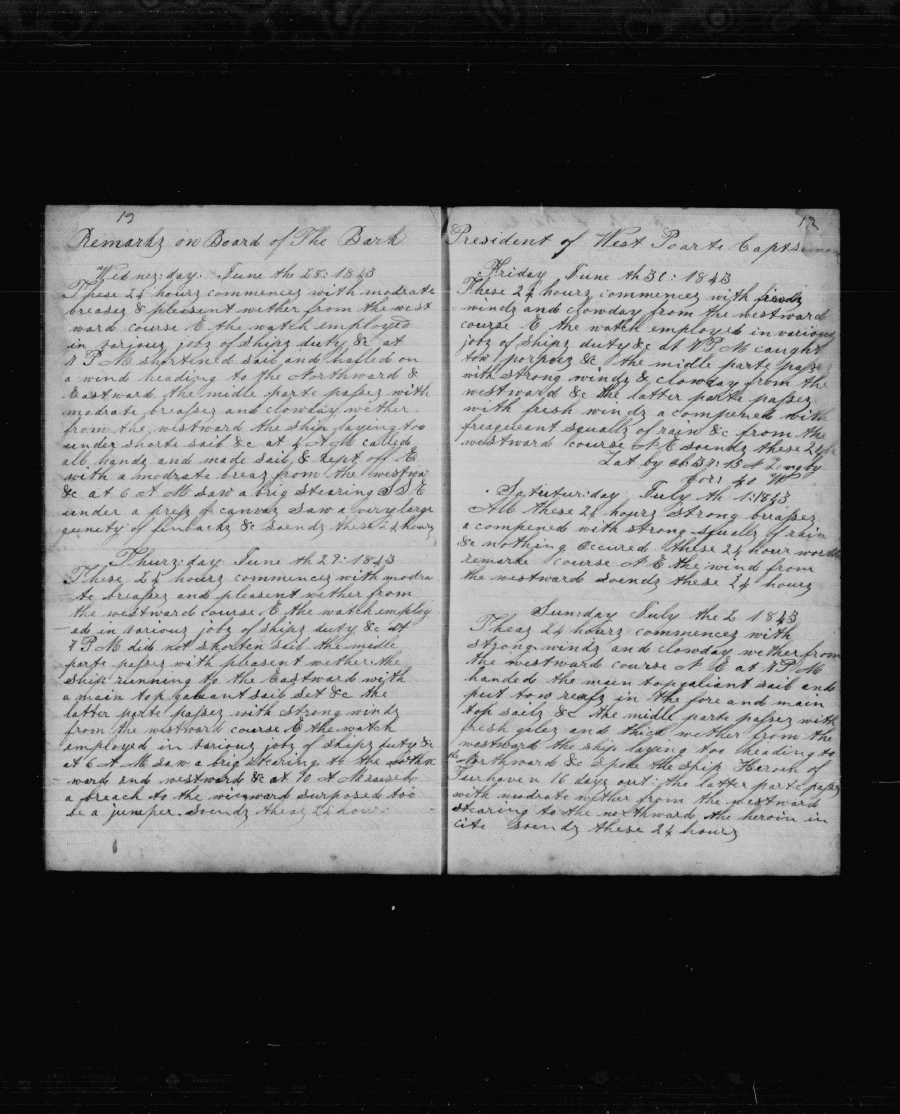 12
Remarkz on Board of The Bark
Wednez:day. June the 28: 1843
These 24 hourz commences with modrate
breases & pleasent wether from the west
ward course E the watch employed
in variouz jobz of shipz duty &c at
7 P M shortened sail and halled on
a wind heading to the Northward &
Eastward the midle parte passez with
modrate breasses and clowday wether.
from the westward the ship laying too
under shorte sail &c at 4 A M called
all handz and made sail & kept of E
with a modrate breaz from the westwa
&c at 6 A M saw a brig stearing S S E
under a press of canvaz saw a very large
of finbackz & soendz these 24 hourz
Thurz:day June th 29: 1843
These 24 hourz commences with modra
te breasses and pleasent wether from
the westward course E the watch employ
-ed in variouz jobz of shipz duty &c at
7 P M did not shorten sail the midle
parte passez with pleasent wether the
ship running to the Eastward with
a main top galuant sail set &c the
latter parte passez with strong windz
from the westward course E the watch
employed in variouz jobz of shipz duty &c
at 6 A M saw a brig stearing to the
ward and westward &c at 10 A M raised
a breach to the winward surposed too
be a jumper. soendz theaz 24 hours
13
President of West Poarte Capt
Friday June th 30: 1843
These 24 hourz commences with
windz and clowday from the westward
course E the watch employed in variouz
jobz of shipz duty &c at 7 P M caught
tow porpoiz &c the middle parte passez
with strong windz & clowday from the
westward &c the latter parte passez
with fresh windz acompened with
freaqueant squalls of rain &c from the
westward course N E soendz these 24 h
Lat by ob 37: 15 N Long by
W
Satutur:day July th 1: 1843
All these 24 hourz strong breasses
acompened with strong squalls of rain
&c nothing occured these 24 hour worth
remarke course N E the wind from
the westward soendz these 24 hourz
Sun:day July the 2 1843
Theaz 24 hours commencez with
strong windz and clowday wether from
the westward course N E at 7 P M
handed the main topgaliant sail and
put tow reafz in the fore and main
top sailz &c the midle parte passez with
fresh galez and thick wether from the
westward the ship laying too heading to
the Northward &c spoke the ship Heroin of
Fairhaven 16 dayz out: the latter parte passz
with modrate wether from the westward
stearing to the northward the heroin in
cite soendz these 24 hourz